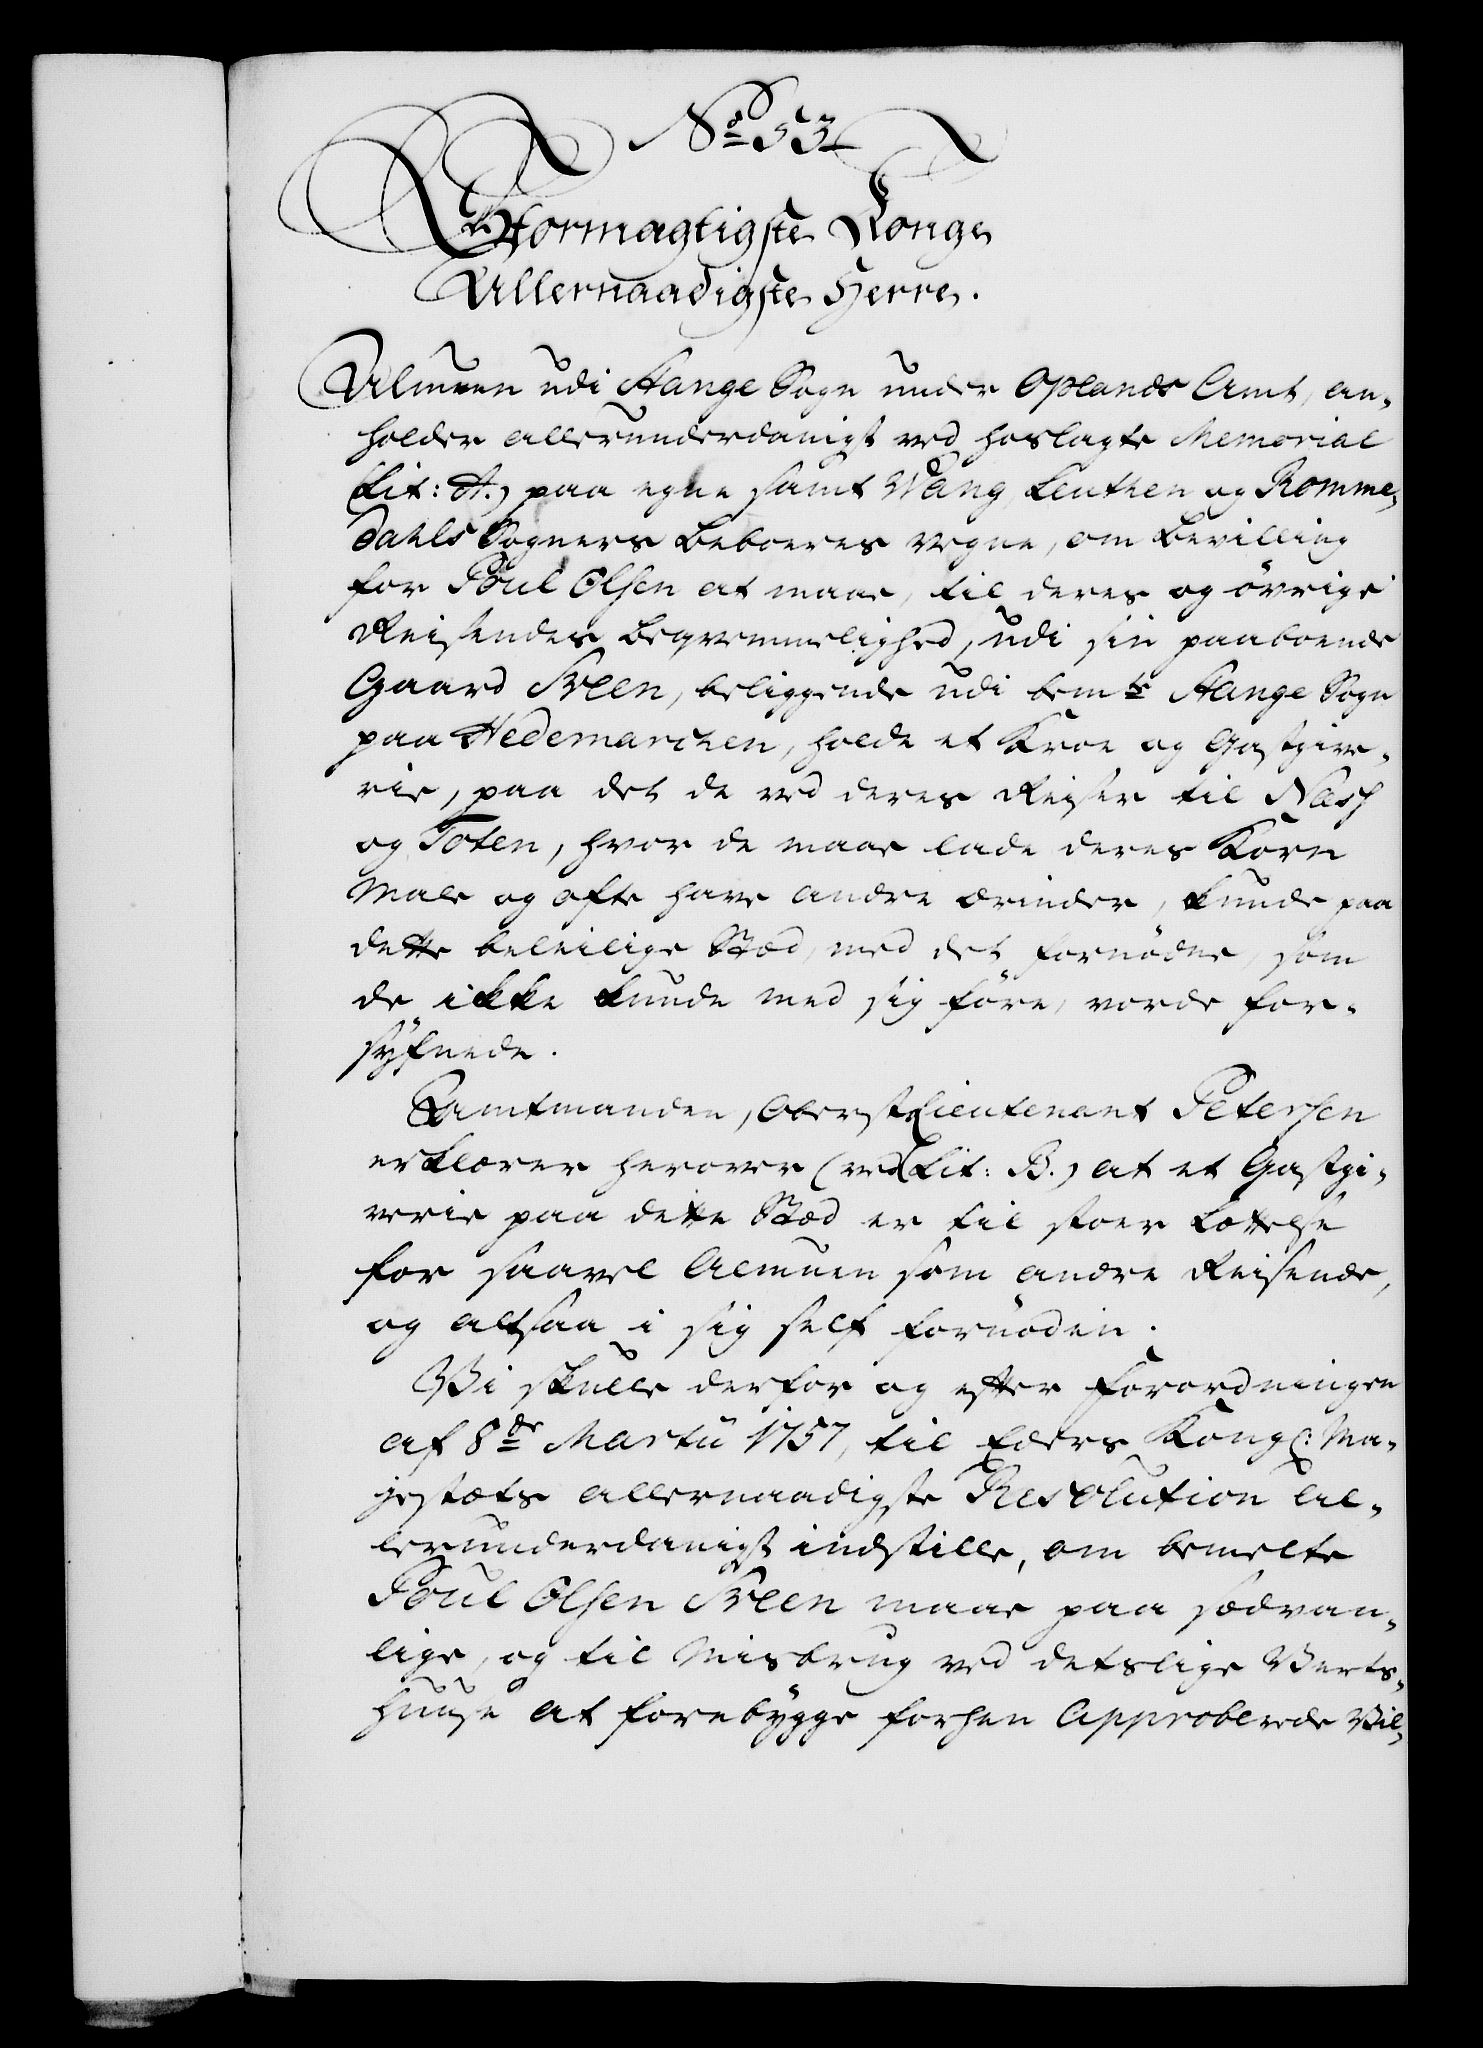 No 53
Stormægtigste Konge
Allernaadigste Herre.
Almuen udi Stange Sogn under Oplands Amt, an-
holder allerunderdanigst ved hoslagte Memorial
(Lit: A.) paa egne samt Wang, Leuthen og Romme-
dahls Sogners Beboeres vegne, om Bevilling
for Poul Olsen at maae, til deres og övrige
Reisendes beqvemmelighed, udi sin paaboende
Gaard Sveen, beliggende udi bemte Stange Sogn
paa Hedemarchen, holde et Kroe og Gæstgive-
rie, paa det de ved deres Reiser til Næss
og Toten, hvor de maae lade deres Korn
Male og ofte have andre ærinder, kunde paa
dette beleilige Stæd, med det fornödne, som
de ikke kunde med sig före, vorde for-
syfnede.
Amtmanden, Oberstlieutenant Petersen
erklærer herover (ved Lit: B.) at et Gæstgi-
verie paa dette Stæd er til stoer Lættelse
for saavel Almuen som andre Reisende,
og altsaa i sig self fornöden.
Vi skulle derfor og efter Forordningen
af 8de Martii 1757, til Eders Kongl: Ma-
jestæts allernaadigste Resolution al-
lerunderdanigst indstille, om bemelte
Poul Olsen Sveen maae paa sædvan-
lige, og til Misbrug ved detslige Verts-
huuse at forebygge forhen Approberede Vil-